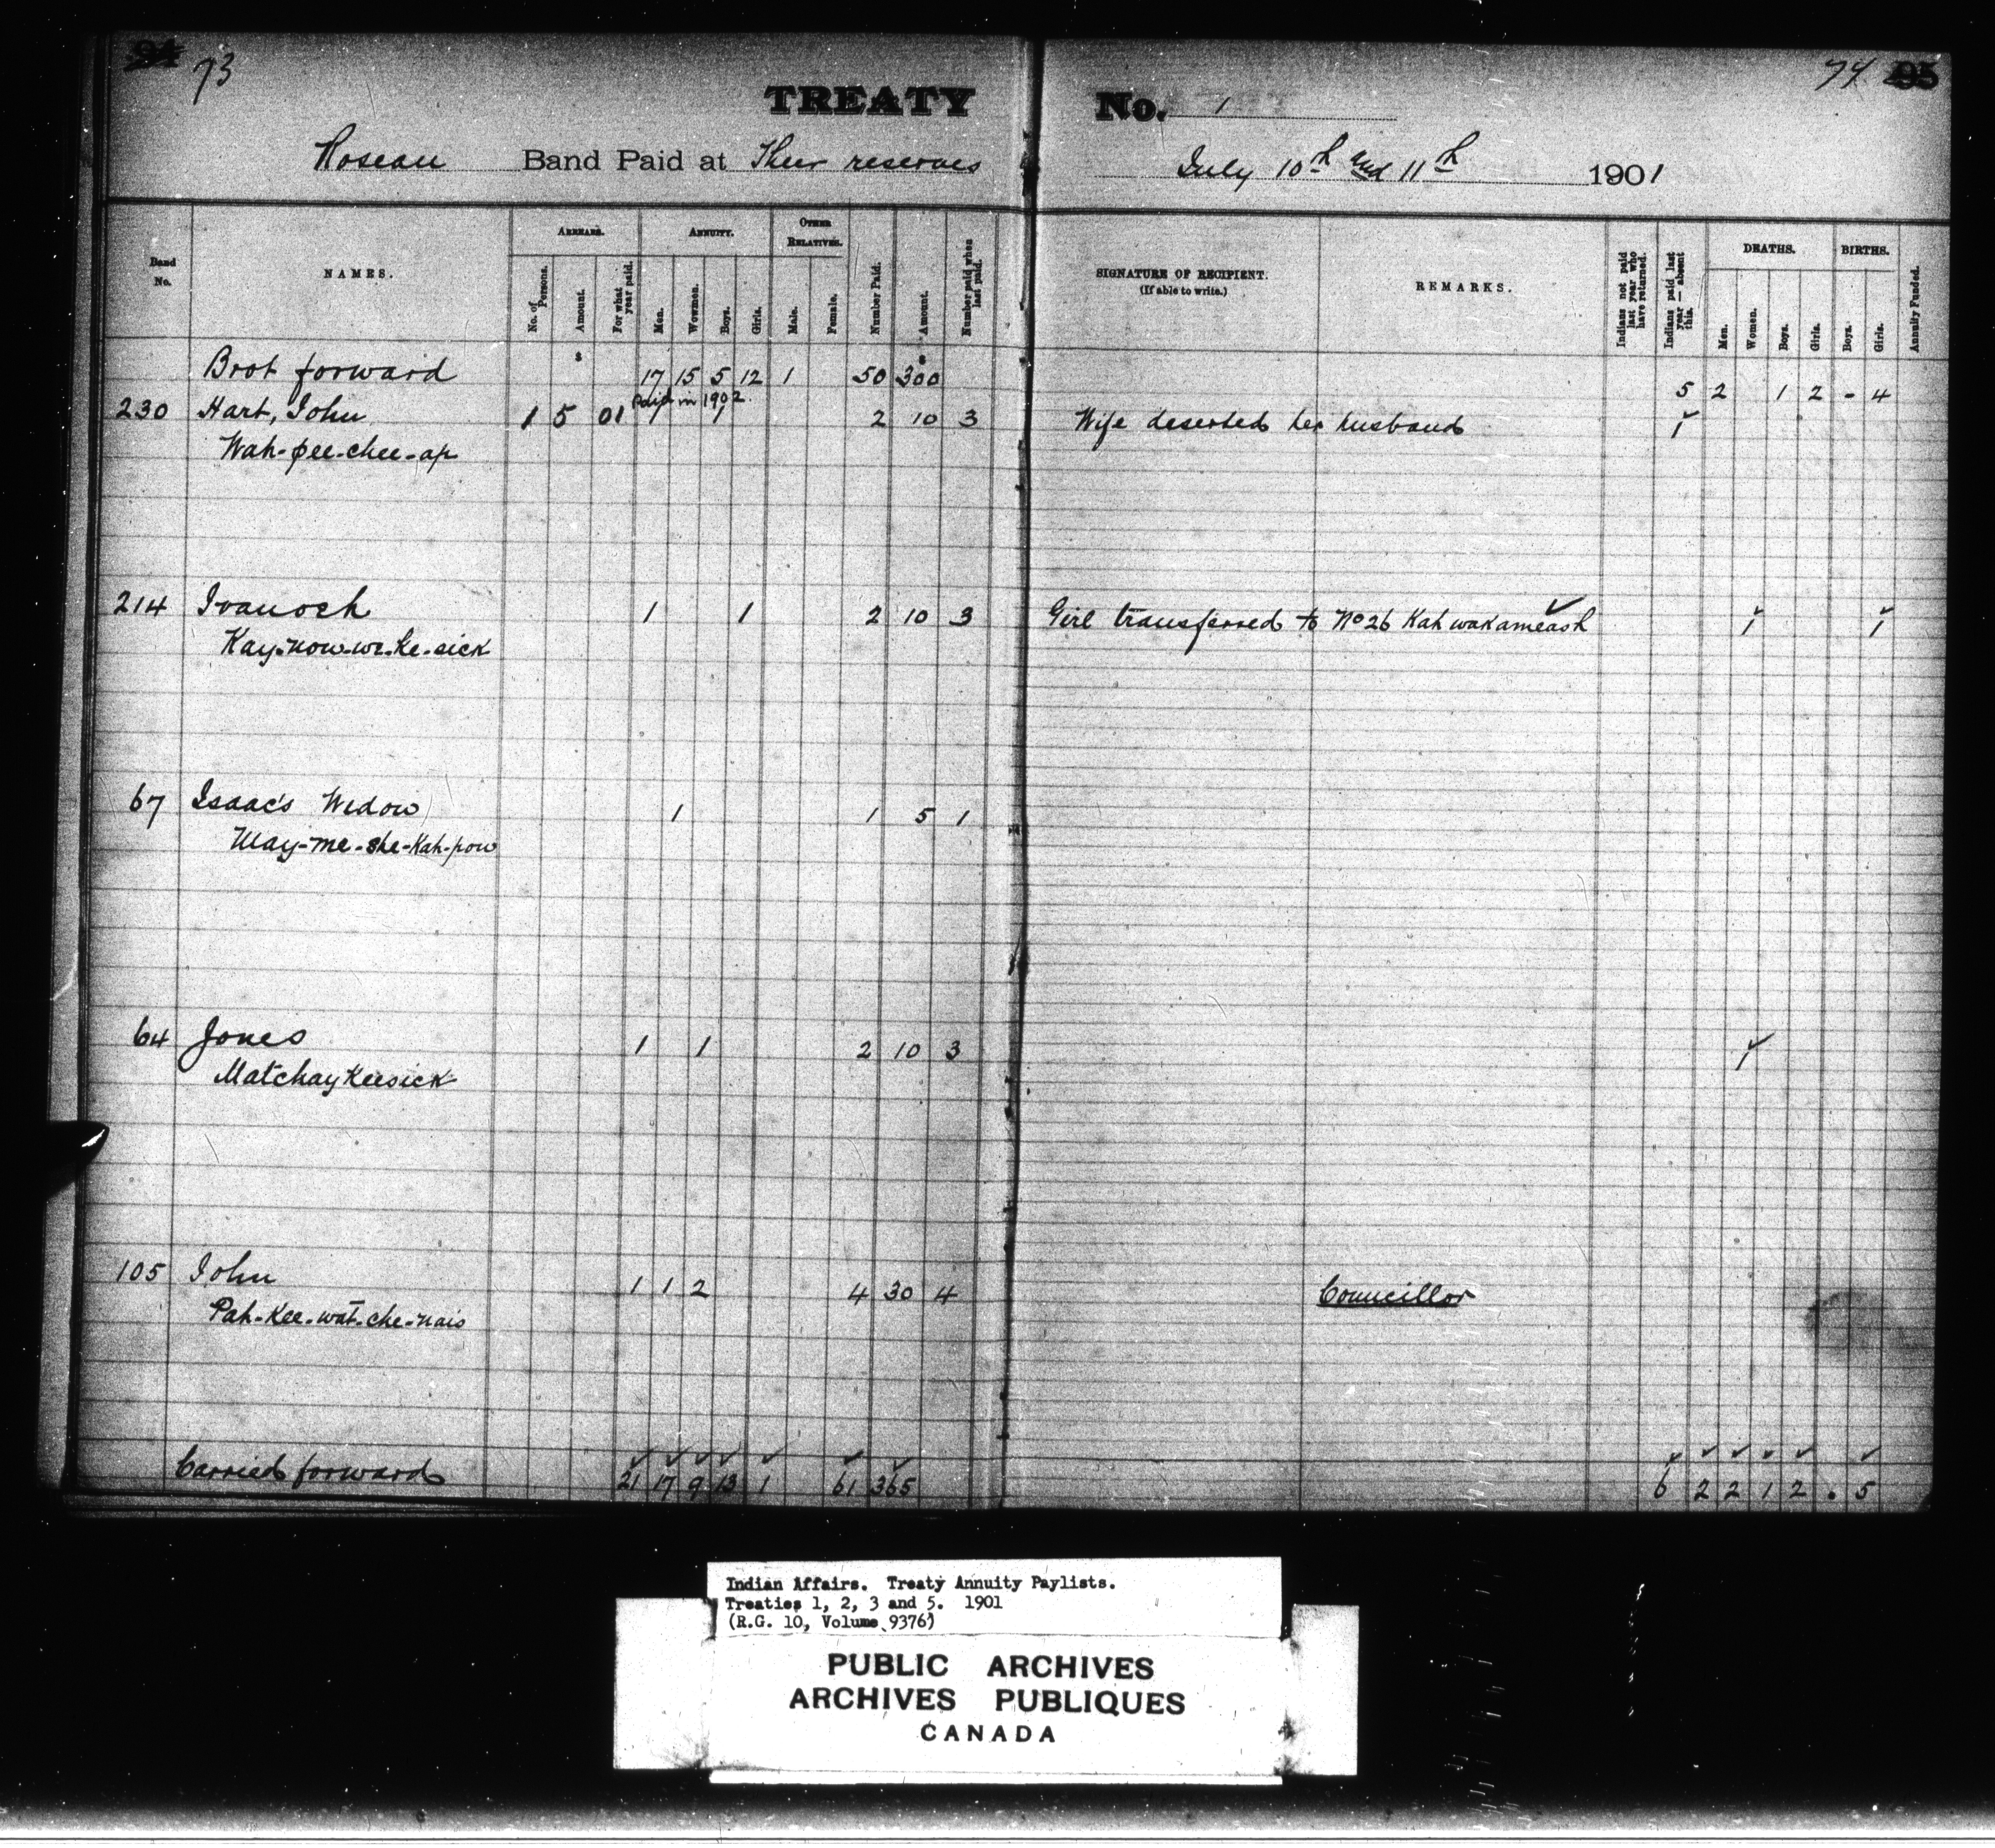 94 73
74 95
TREATY No. 1
Roseau Band Paid at Their reserves July 10th and 11th 1901
Band No.
NAMES.
ARREARS.
No. of Persons.
Amount.
For what year paid.
ANNUITY.
Men.
Women.
Boys.
Girls.
OTHER RELATIVES.
Male.
Female.
Number Paid.
Amount.
Number paid when last paid.
SIGNATURE OF RECIPIENT.
(If able to write.)
REMARKS.
Indians not paid last year who have returned.
Indians paid last year — absent this.
DEATHS.
Men.
Women.
Boys.
Girls.
BIRTHS.
Boys.
Girls.
Annuity Funded.
$ $
Brot forward 17 15 5 12 1 50 300 5 2 1 2 - 4
Paid in 1902.
230 Hart, John 1 5 01 1 1 2 10 3 Wife deserted her husband 1
Wah-pee-chee-ap
214 Ivanoch 1 1 2 10 3 Girl transferred to No 26 Kahwakameash 1 1
Kay-now-we-ke-sick
67 Isaac's Widow 1 1 5 1
May-me-she-Kah-pow
64 Jones 1 1 2 10 3 1
MatchayKeesick
105 John 1 1 2 4 30 4 Councillor
Pah-Kee-wat-che-nais
Carried forward 21 17 9 13 1 61 365 6 2 2 1 2 . 5
Indian Affairs. Treaty Annuity Paylists.
Treaties 1, 2, 3 and 5. 1901
(R.G. 10, Volume 9376)
PUBLIC ARCHIVES
ARCHIVES PUBLIQUES
CANADA